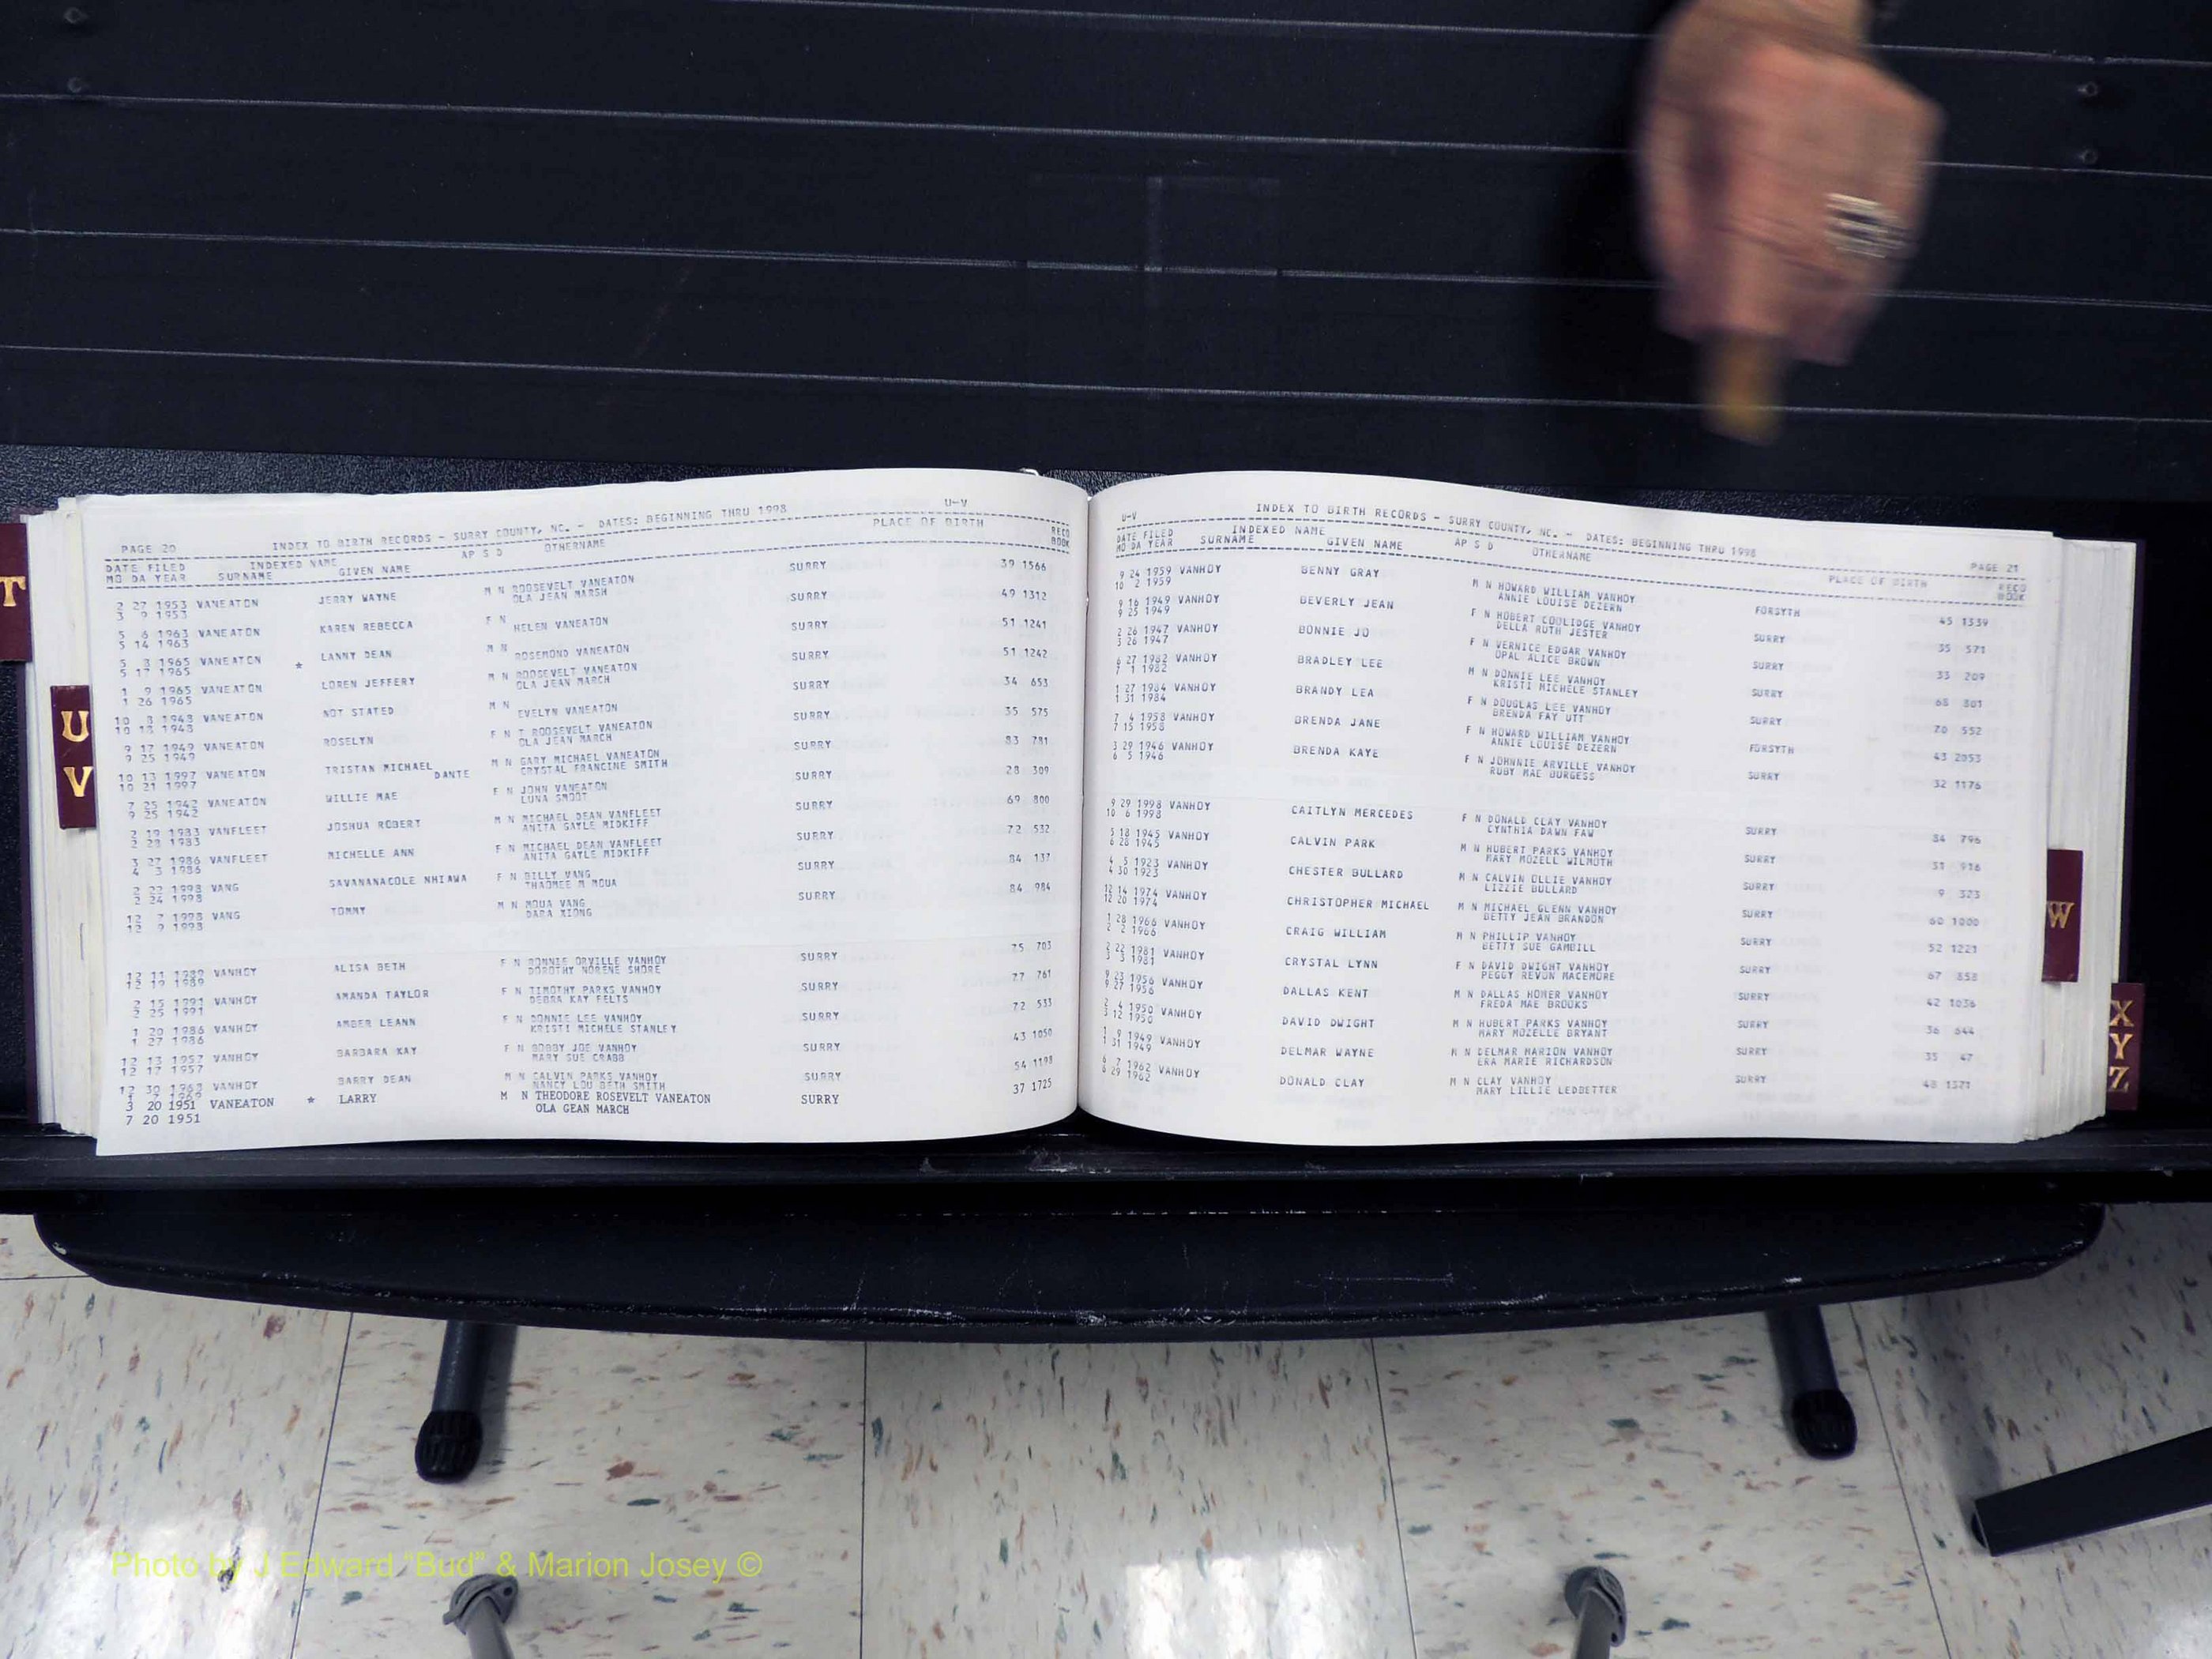 T
U
V
W
X
Y
Z
U-V
PAGE 20 INDEX TO BIRTH RECORDS - SURRY COUNTY, NC. - DATES: BEGINNING THRU 1998
DATE FILED INDEXED NAME AP S D OTHERNAME PLACE OF BIRTH RECD
MO DA YEAR SURNAME GIVEN NAME BOOK
2 27 1953 VANEATON JERRY WAYNE M N ROOSEVELT VANEATON SURRY 39 1566
3 9 1953 OLA JEAN MARSH
5 6 1963 VANEATON KAREN REBECCA F N SURRY 49 1312
5 14 1963 HELEN VANEATON
5 8 1965 VANEATON * LANNY DEAN M N SURRY 51 1241
5 17 1965 ROSEMOND VANEATON
1 9 1965 VANEATON LOREN JEFFERY M N ROOSEVELT VANEATON SURRY 51 1242
1 26 1965 OLA JEAN MARCH
10 8 1948 VANEATON NOT STATED M N SURRY 34 653
10 18 1948 EVELYN VANEATON
9 17 1949 VANEATON ROSELYN F N T ROOSEVELT VANEATON SURRY 35 575
9 25 1949 OLA JEAN MARCH
10 13 1997 VANEATON TRISTAN MICHAEL M N GARY MICHAEL VANEATON SURRY 83 781
10 21 1997 DANTE CRYSTAL FRANCINE SMITH
7 25 1942 VANEATON WILLIE MAE F N JOHN VANEATON SURRY 28 309
9 25 1942 LUNA SMOOT
2 19 1983 VANFLEET JOSHUA ROBERT M N MICHAEL DEAN VANFLEET SURRY 69 800
2 28 1983 ANITA GAYLE MIDKIFF
3 27 1986 VANFLEET MICHELLE ANN F N MICHAEL DEAN VANFLEET SURRY 72 532
4 3 1986 ANITA GAYLE MIDKIFF
2 22 1998 VANG SAVANANACOLE NHIAWA F N BILLY VANG SURRY 84 137
2 24 1998 THAOMEE M MOUA
12 7 1998 VANG TOMMY M N MOUA VANG SURRY 84 984
12 9 1998 DARA XIONG
12 11 1989 VANHOY ALISA BETH F N RONNIE ORVILLE VANHOY SURRY 75 703
12 19 1989 DOROTHY NORENE SHORE
2 15 1991 VANHOY AMANDA TAYLOR F N TIMOTHY PARKS VANHOY SURRY 77 761
2 25 1991 DEBRA KAY FELTS
1 20 1986 VANHOY AMBER LEANN F N DONNIE LEE VANHOY SURRY 72 533
1 27 1986 KRISTI MICHELE STANLEY
12 13 1957 VANHOY BARBARA KAY F N BOBBY JOE VANHOY SURRY 43 1050
12 17 1957 MARY SUE CRABB
12 30 1968 VANHOY BARRY DEAN M N CALVIN PARKS VANHOY SURRY 54 1198
NANCY LOU BETH SMITH
3 20 1951 VANEATON * LARRY M N THEODORE ROSEVELT VANEATON SURRY 37 1725
7 20 1951 OLA GEAN MARCH
U-V INDEX TO BIRTH RECORDS - SURRY COUNTY, NC. - DATES: BEGINNING THRU 1998 PAGE 21
DATE FILED INDEXED NAME AP S D OTHERNAME PLACE OF BIRTH RECD
MO DA YEAR SURNAME GIVEN NAME BOOK
9 24 1959 VANHOY BENNY GRAY M N HOWARD WILLIAM VANHOY FORSYTH 45 1339
10 2 1959 ANNIE LOUISE DEZERN
9 16 1949 VANHOY BEVERLY JEAN F N HOBERT COOLIDGE VANHOY SURRY 35 571
9 25 1949 DELLA RUTH JESTER
2 26 1947 VANHOY BONNIE JO F N VERNICE EDGAR VANHOY SURRY 33 209
3 26 1947 OPAL ALICE BROWN
6 27 1982 VANHOY BRADLEY LEE M N DONNIE LEE VANHOY SURRY 68 801
7 1 1982 KRISTI MICHELE STANLEY
1 27 1984 VANHOY BRANDY LEA F N DOUGLAS LEE VANHOY SURRY 70 552
1 31 1984 BRENDA FAY UTT
7 4 1958 VANHOY BRENDA JANE F N HOWARD WILLIAM VANHOY FORSYTH 43 2053
7 15 1958 ANNIE LOUISE DEZERN
3 29 1946 VANHOY BRENDA KAYE F N JOHNNIE ARVILLE VANHOY SURRY 32 1176
6 5 1946 RUBY MAE BURGESS
9 29 1998 VANHOY CAITLYN MERCEDES F N DONALD CLAY VANHOY SURRY 84 796
10 6 1998 CYNTHIA DAWN FAW
5 18 1945 VANHOY CALVIN PARK M N HUBERT PARKS VANHOY SURRY 31 916
6 28 1945 MARY MOZELL WILMOTH
4 5 1923 VANHOY CHESTER BULLARD M N CALVIN OLLIE VANHOY SURRY 9 323
4 30 1923 LIZZIE BULLARD
12 14 1974 VANHOY CHRISTOPHER MICHAEL M N MICHAEL GLENN VANHOY SURRY 60 1000
12 20 1974 BETTY JEAN BRANDON
1 28 1966 VANHOY CRAIG WILLIAM M N PHILLIP VANHOY SURRY 52 1221
2 2 1966 BETTY SUE GAMBILL
2 22 1981 VANHOY CRYSTAL LYNN F N DAVID DWIGHT VANHOY SURRY 67 858
3 3 1981 PEGGY REVON MACEMORE
9 23 1956 VANHOY DALLAS KENT M N DALLAS HOMER VANHOY SURRY 42 1036
9 27 1956 FREDA MAE BROOKS
2 4 1950 VANHOY DAVID DWIGHT M N HUBERT PARKS VANHOY SURRY 36 644
3 12 1950 MARY MOZELLE BRYANT
1 9 1949 VANHOY DELMAR WAYNE M N DELMAR MARION VANHOY SURRY 35 47
1 31 1949 ERA MARIE RICHARDSON
6 7 1962 VANHOY DONALD CLAY M N CLAY VANHOY SURRY 48 1371
6 29 1962 MARY LILLIE LEDBETTER
Photo by J Edward "Bud" & Marion Josey ©